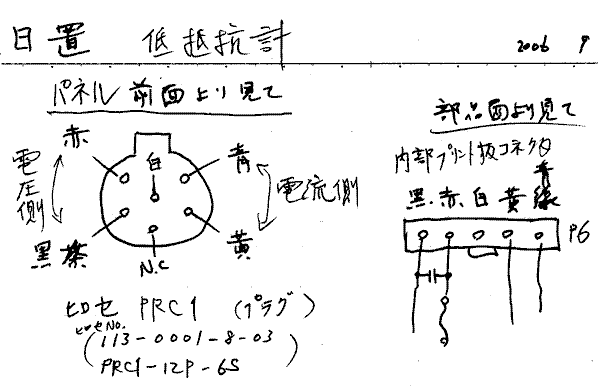 日置 低抵抗計
2006 9
パネル 前面より見て
部品面より見て
内部プリント板コネクタ
赤
白
青
電圧側
電流側
黒
黄
N.C
黒.赤.白 黄 青
P6
ヒロセ PRC1 (プラグ)
ヒロセNo.
(113-0001-8-03
PRC1-12P-6S)